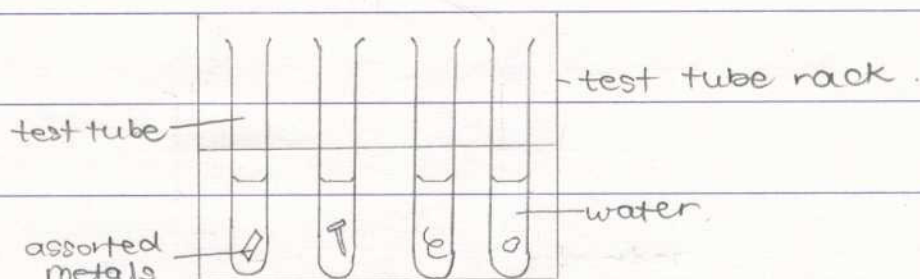 test tube rack
test tube
water
assorted
metals